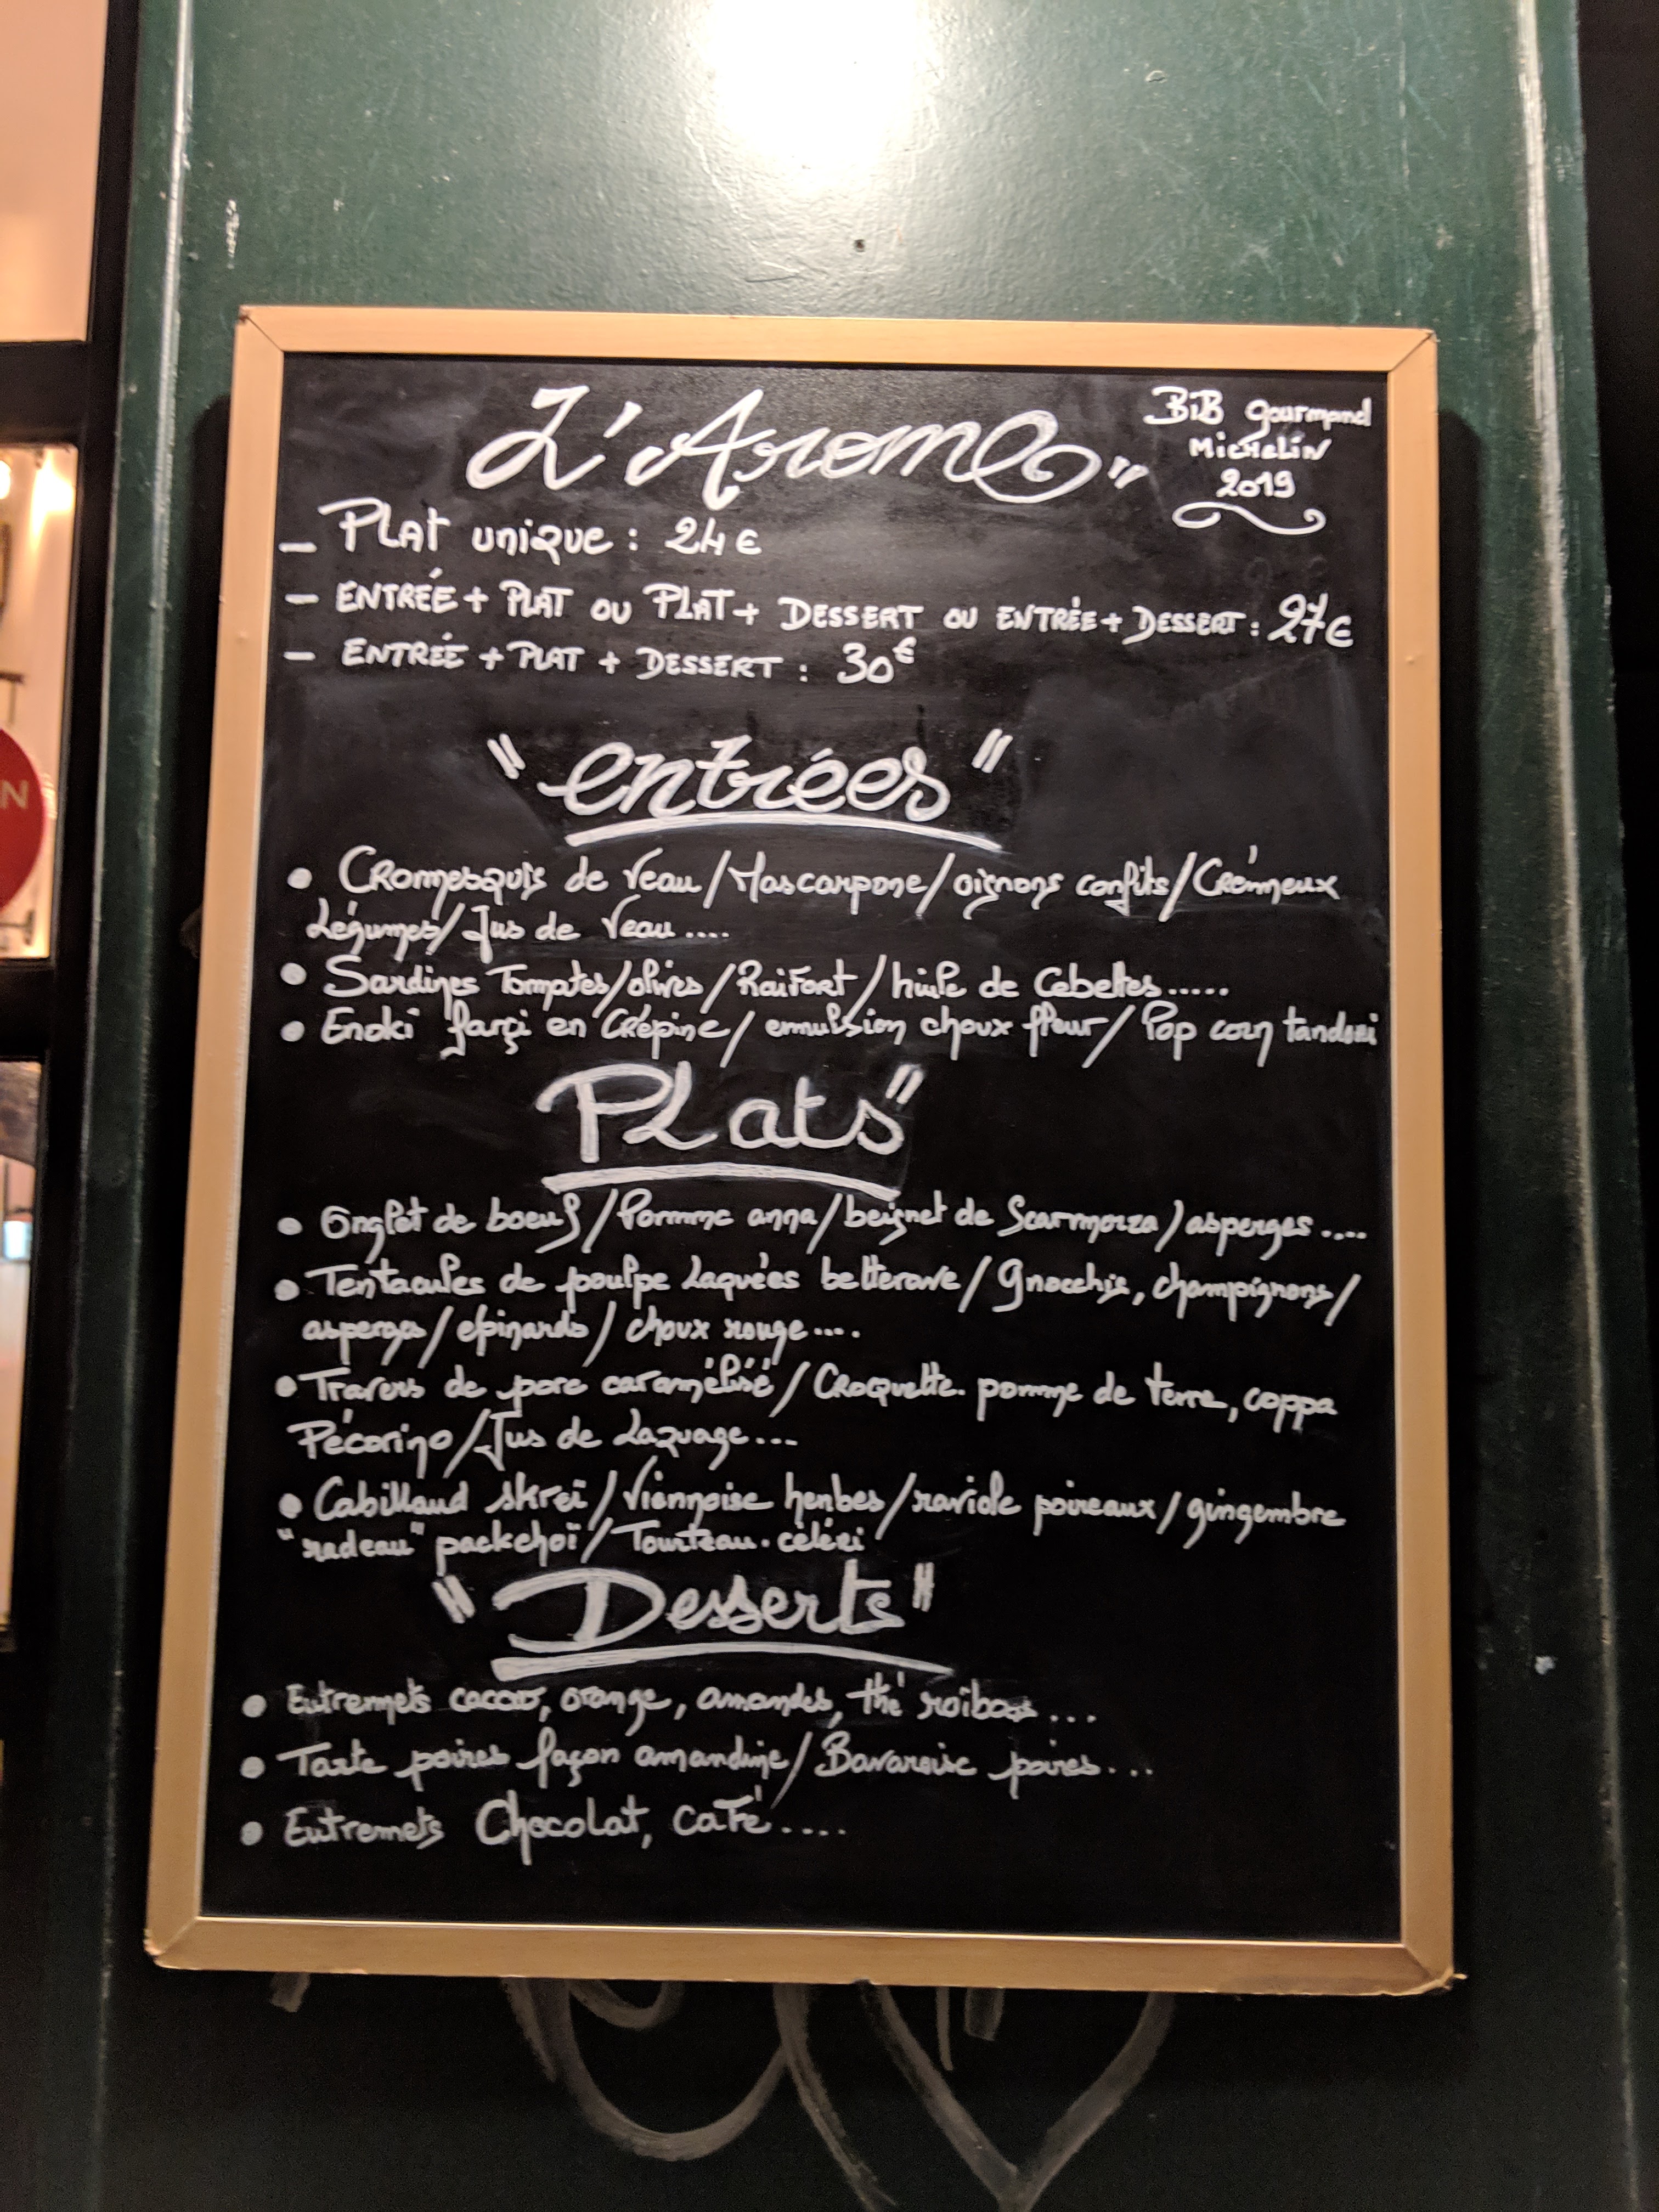 L'Arome"
BiB Gourmand
Michelin
2019
- Plat unique : 24€
- ENTRÉE + PLAT OU PLAT + DESSERT OU ENTRÉE + DESSERT : 27€
- ENTRÉE + PLAT + DESSERT : 30€
"entrées"
• Cromesquis de Veau/Mascarpone/oignons confits/Crémeux
Légumes/Jus de Veau ....
• Sardines Tomates/olives/Raifort/huile de Cebettes.....
• Enoki farçi en Crépine/emulsion choux fleur/Pop corn tandori
Plats"
• Onglet de boeuf/Pomme anna/beignet de Scarmorza/asperges....
• Tentacules de poulpe Laquées betterave/Gnocchis, champignons/
asperges/epinards/choux rouge....
• Travers de porc caramélisé/Croquette. pomme de terre, coppa
Pécorino/Jus de Laquage...
• Cabillaud skreï/Viennoise herbes/raviole poireaux/gingembre
"radeau" packchoï/Tourteau.céleri
"Desserts"
• Entremets cacao, orange, amandes, thé roïbos...
• Tarte poires façon amandine/Bavaroise poires...
• Entremets Chocolat, café....
N